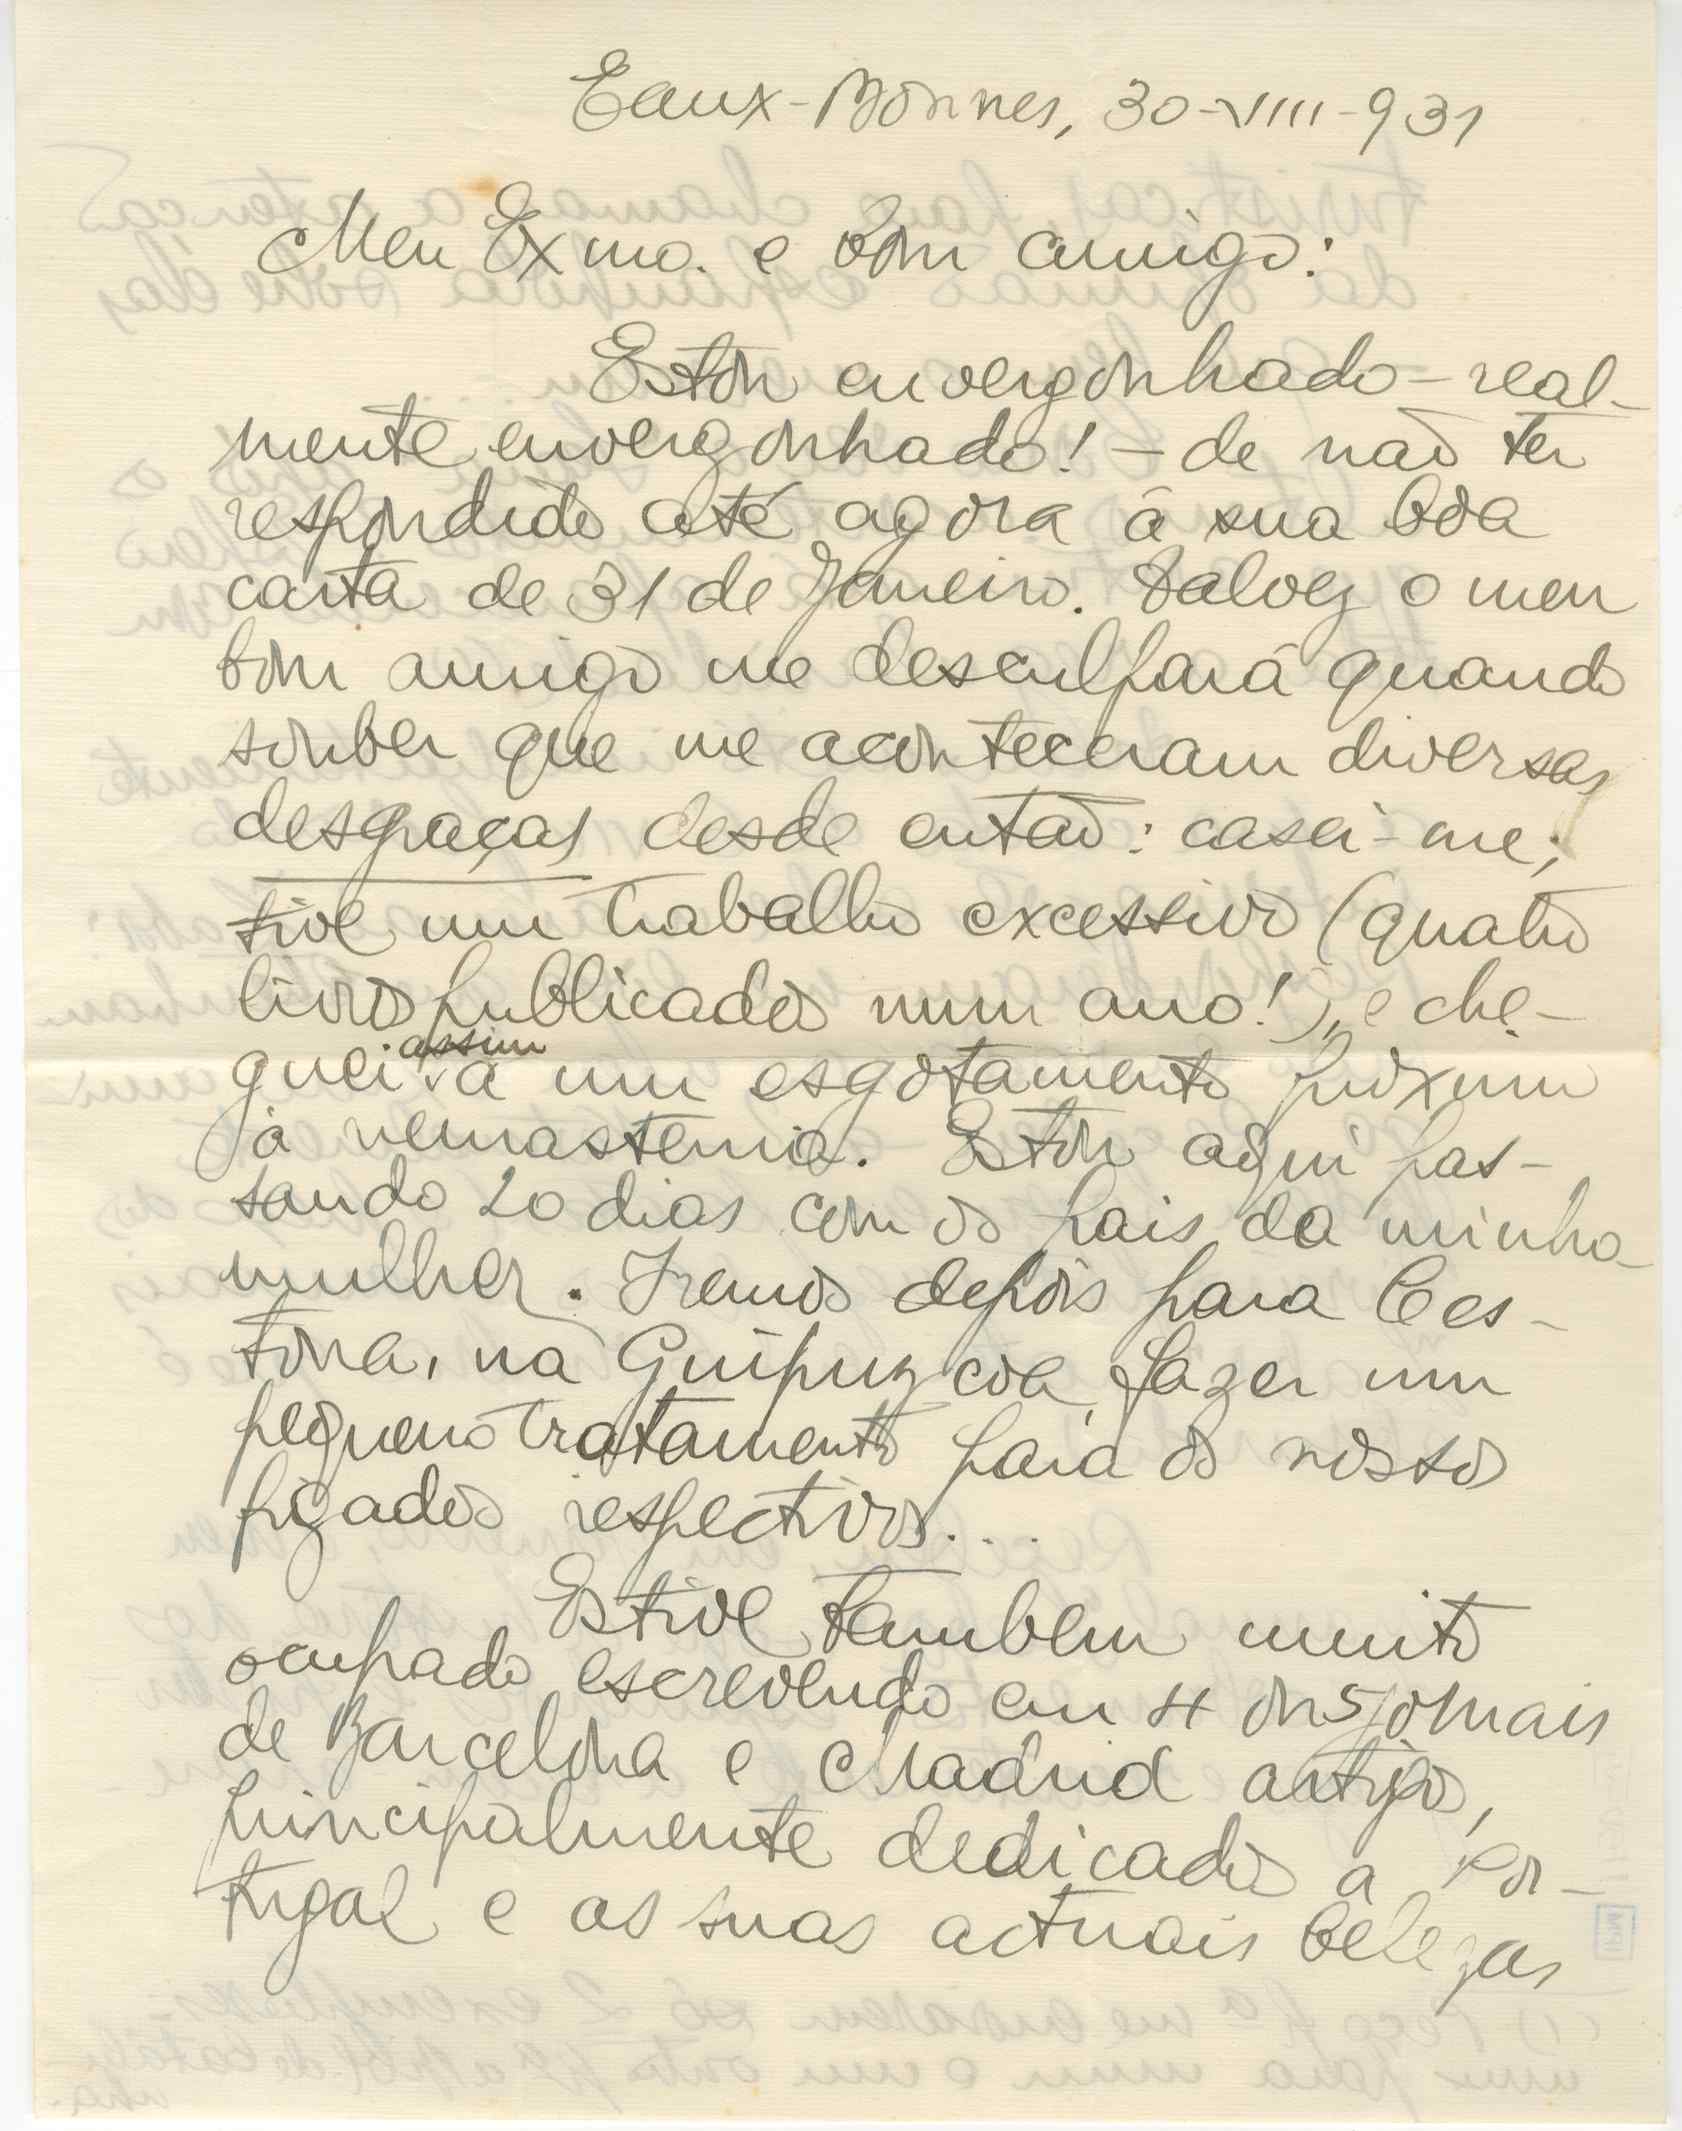 Eaux-Bonnes, 30-VIIII-931
Meu Exmo. e bom amigo:
Estou envergonhado - real-
mente envergonhado! - de não ter
respondido até agora á sua boa
carta de 31 de Janeiro. Talvez o meu
bom amigo me desculpará quando
souber que me aconteceram diversas
desgraças desde então: casei-me;
tive um trabalho excessivo (quatro
livros publicados num ano!), e che-
guei assim a um esgotamento proximo
á neurastenia. Estou aqui pas-
sando 20 dias com os pais da minha
mulher. Iremos depois para Ces-
tona, na Guipuzcoa, fazer um
pequeno tratamento para os nossos
figados respectivos...
Estive tambem muito
ocupado escrevendo em 4 ou 5 jornais
de Barcelona e Madrid artigos,
principalmente dedicados a Por-
tugal e as suas actuais belezas
IPM